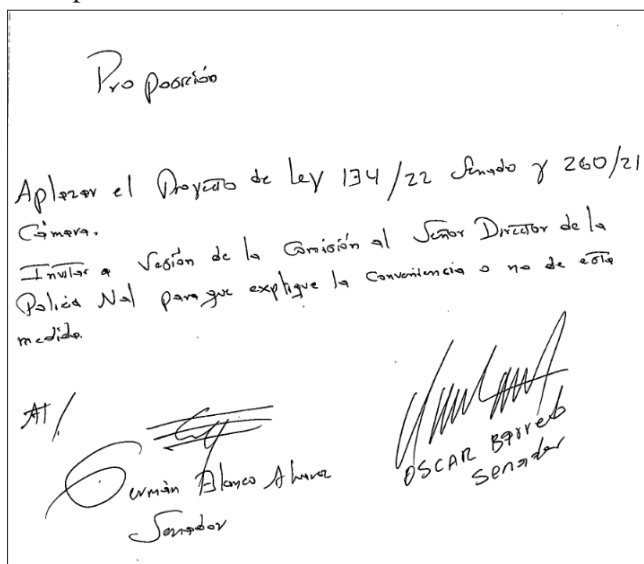 Proposición
Aplazar el Proyecto de Ley 134/22 Senado y 260/21
Cámara.
Invitar a Sesión de la Comisión al Señor Director de la
Policía Nal para que explique la conveniencia o no de esta
medida.
At/
Germán Blanco Alvarez
Senador
OSCAR Barreto
Senador